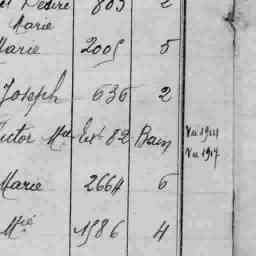 Désiré 803 2
Marie
Marie 2005 5
Joseph 636 2
Victor Mie Ext 82 Bain Vu 1911
Vu 1917
Marie 2664 6
Mie 1586 4